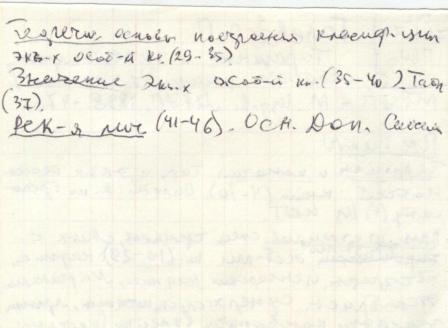 Теоретич. основы построения классифик-ции
экв-х особ-й кл. (29-35)
Значение экв-х особ-й кл. (35-40). Табл
(37).
РСК-я мсч (41-46). Осн. Доп.